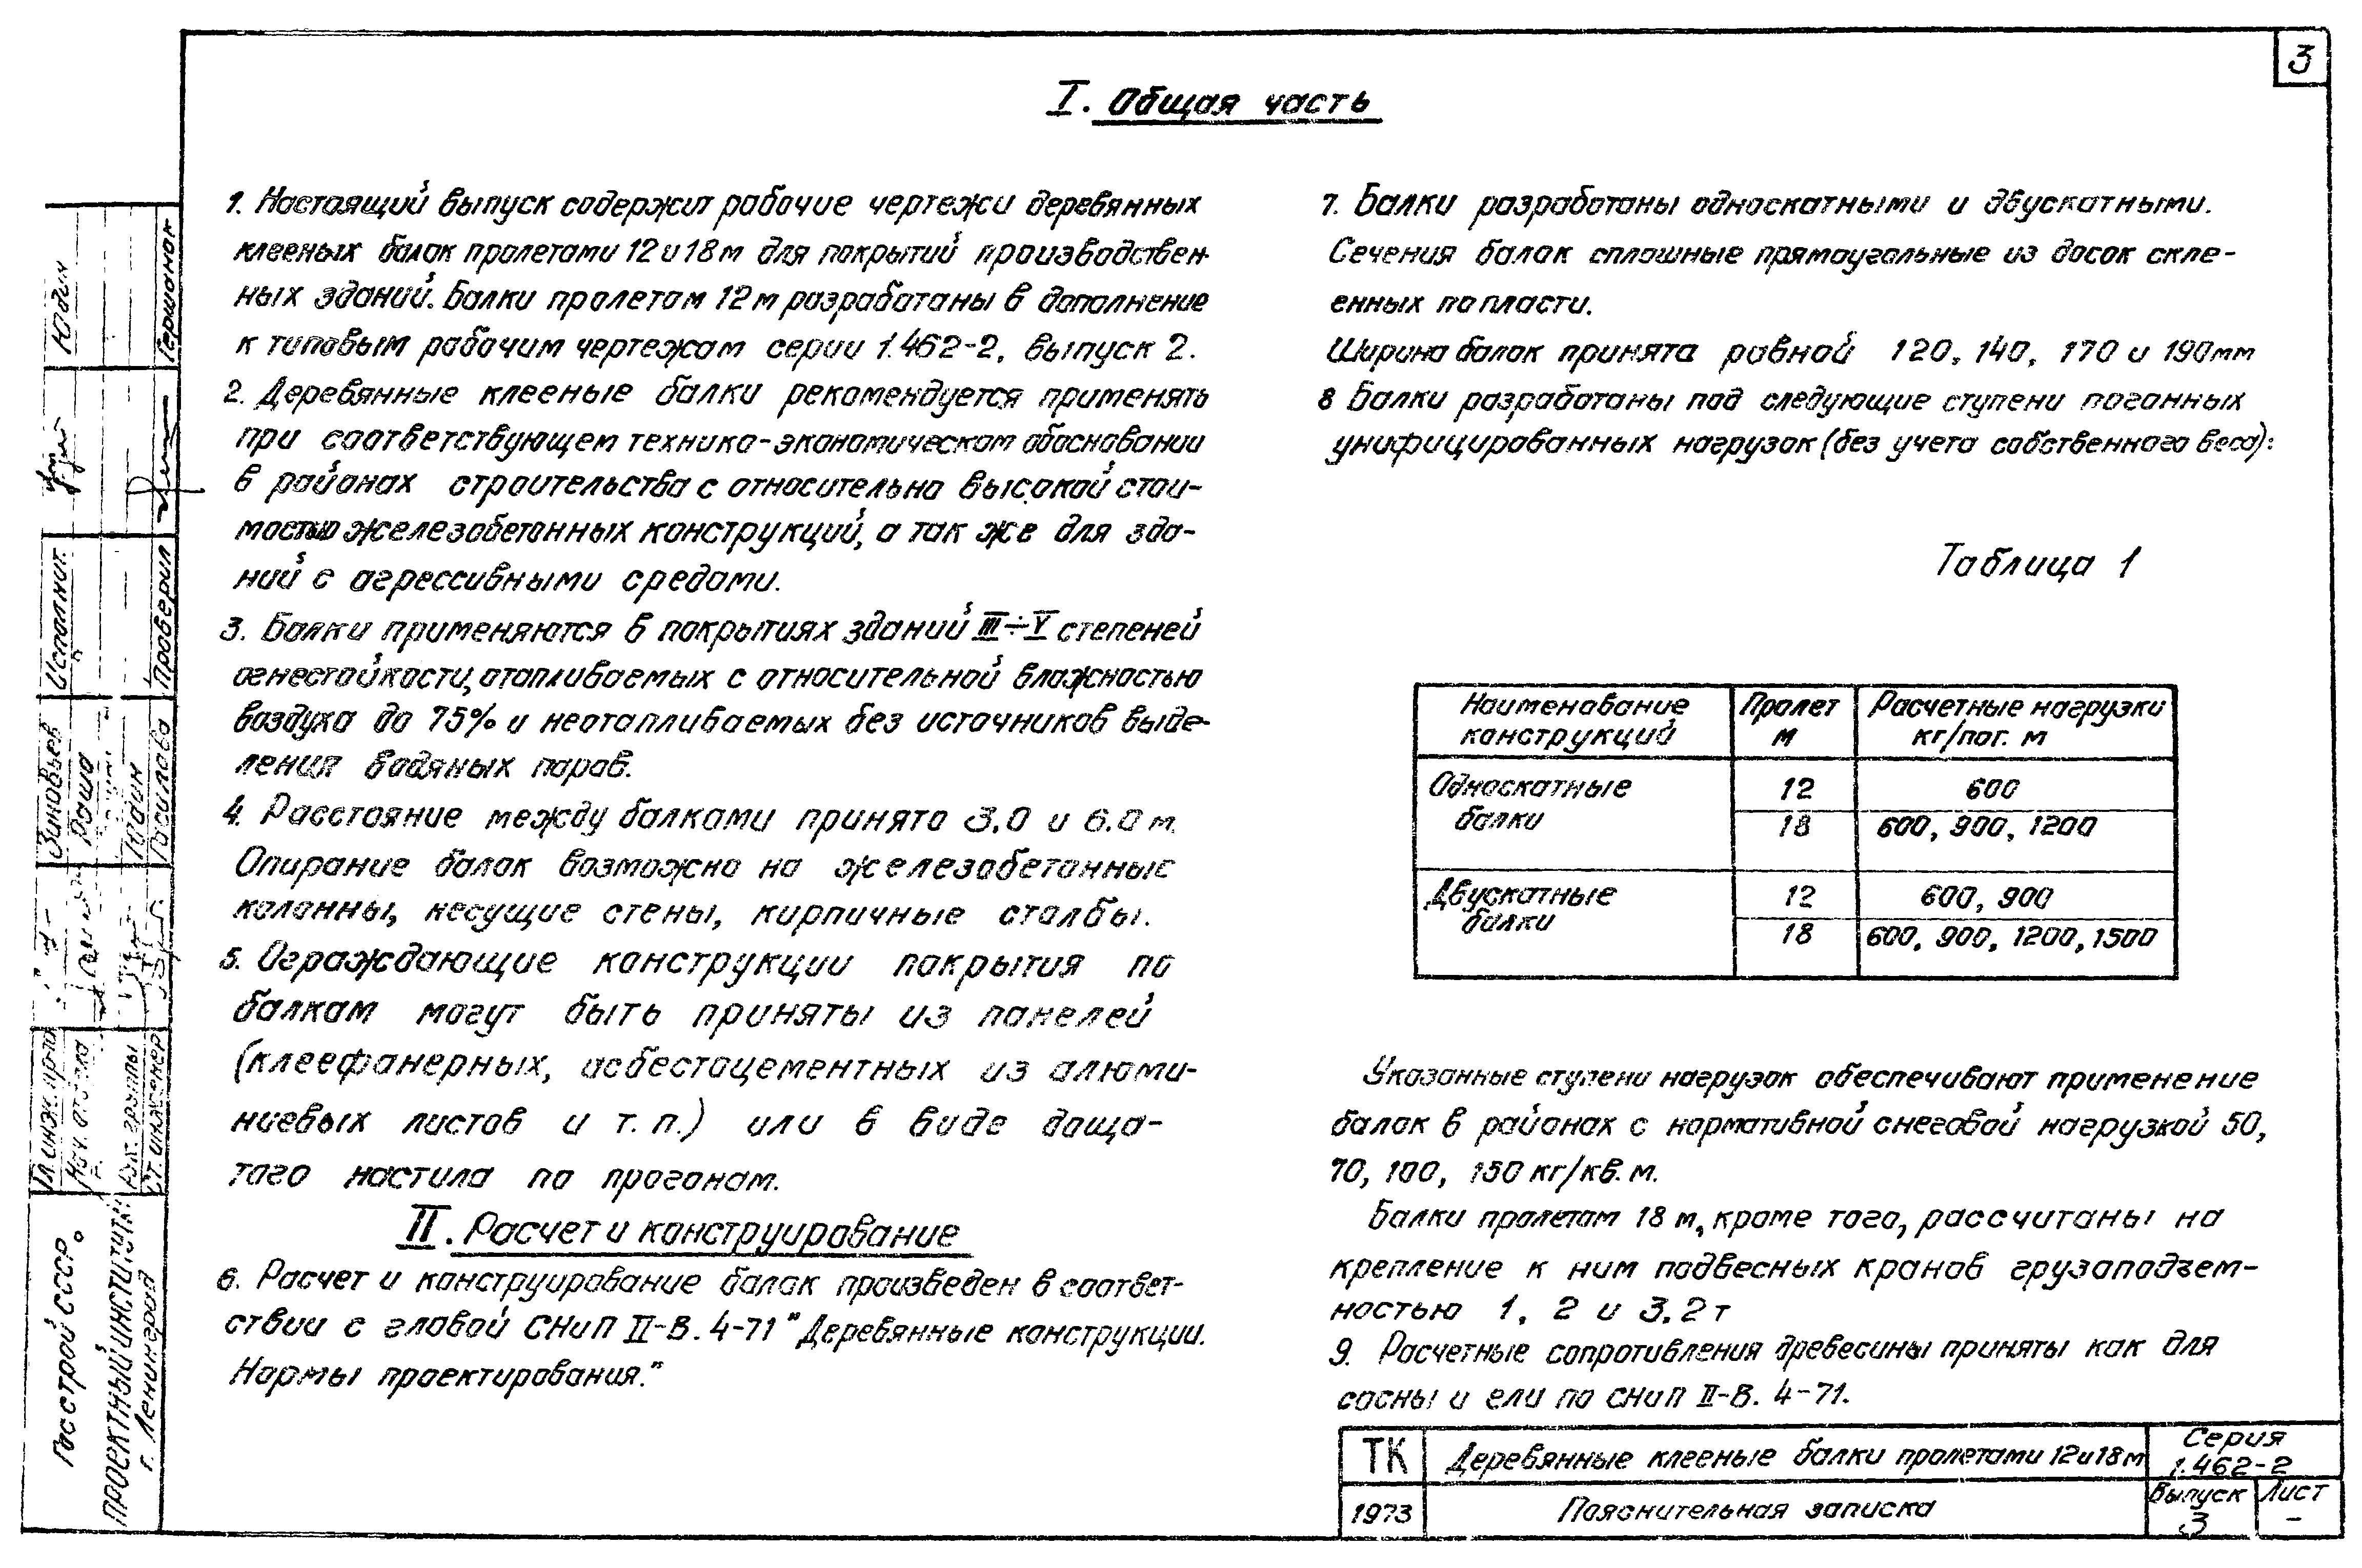 3
I. Общая часть
1. Настоящий выпуск содержит рабочие чертежи деревянных
клееных балок пролетами 12 и 18 м для покрытий производствен-
ных зданий. Балки пролетом 12 м разработаны в дополнение
к типовым рабочим чертежам серии 1.462-2, выпуск 2.
2. Деревянные клееные балки рекомендуется применять
при соответствующем технико-экономическом обосновании
в районах строительства с относительно высокой стои-
мостью железобетонных конструкций, а так же для зда-
ний с агрессивными средами.
3. Балки применяются в покрытиях зданий III÷V степеней
огнестойкости, отапливаемых с относительной влажностью
воздуха до 75% и неотапливаемых без источников выде-
ления водяных паров.
4. Расстояние между балками принято 3.0 и 6.0 м.
Опирание балок возможно на железобетонные
колонны, несущие стены, кирпичные столбы.
5. Ограждающие конструкции покрытия по
балкам могут быть приняты из панелей
(клеефанерных, асбестоцементных из алюми-
ниевых листов и т.п.) или в виде доща-
того настила по прогонам.
II. Расчет и конструирование
6. Расчет и конструирование балок произведен в соответ-
ствии с главой СНиП II-В. 4-71 "Деревянные конструкции.
Нормы проектирования."
7. Балки разработаны односкатными и двускатными.
Сечения балок сплошные прямоугольные из досок скле-
енных по пласти.
Ширина балок принята равной 120, 140, 170 и 190 мм
8 Балки разработаны под следующие ступени погонных
унифицированных нагрузок (без учета собственного веса):
Таблица 1
Наименование конструкций
Пролет м
Расчетные нагрузки кг/пог. м
Односкатные балки
12
600
18
600, 900, 1200
Двускатные балки
12
600, 900
18
600, 900, 1200, 1500
Указанные ступени нагрузок обеспечивают применение
балок в районах с нормативной снеговой нагрузкой 50,
70, 100, 150 кг/кв. м.
Балки пролетом 18 м, кроме того, рассчитаны на
крепление к ним подвесных кранов грузоподъем-
ностью 1, 2 и 3.2 т
9. Расчетные сопротивления древесины приняты как для
сосны и ели по СНиП II-В. 4-71.
ТК
Деревянные клееные балки пролетами 12 и 18 м
Серия
1.462-2
1973
Пояснительная записка
Выпуск
3
Лист
-
Госстрой СССР
Проектный институт
г. Ленинград
Гл. инж. пр-та
Нач. отдела
Рук. группы
Ст. инженер
Зиновьев
Юдин
Исполнит.
Проверил
Юдин
Гершанок